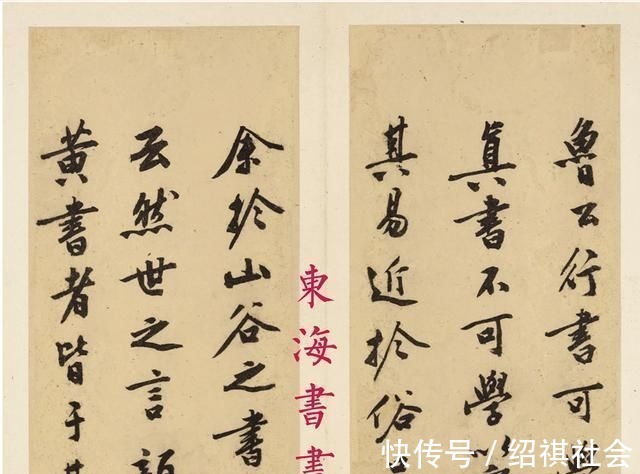 魯公行書可
真書不可學
其易近於俗
余於山谷之書
云然世之言
黄書者皆于
東海書
快传号/绍祺社会